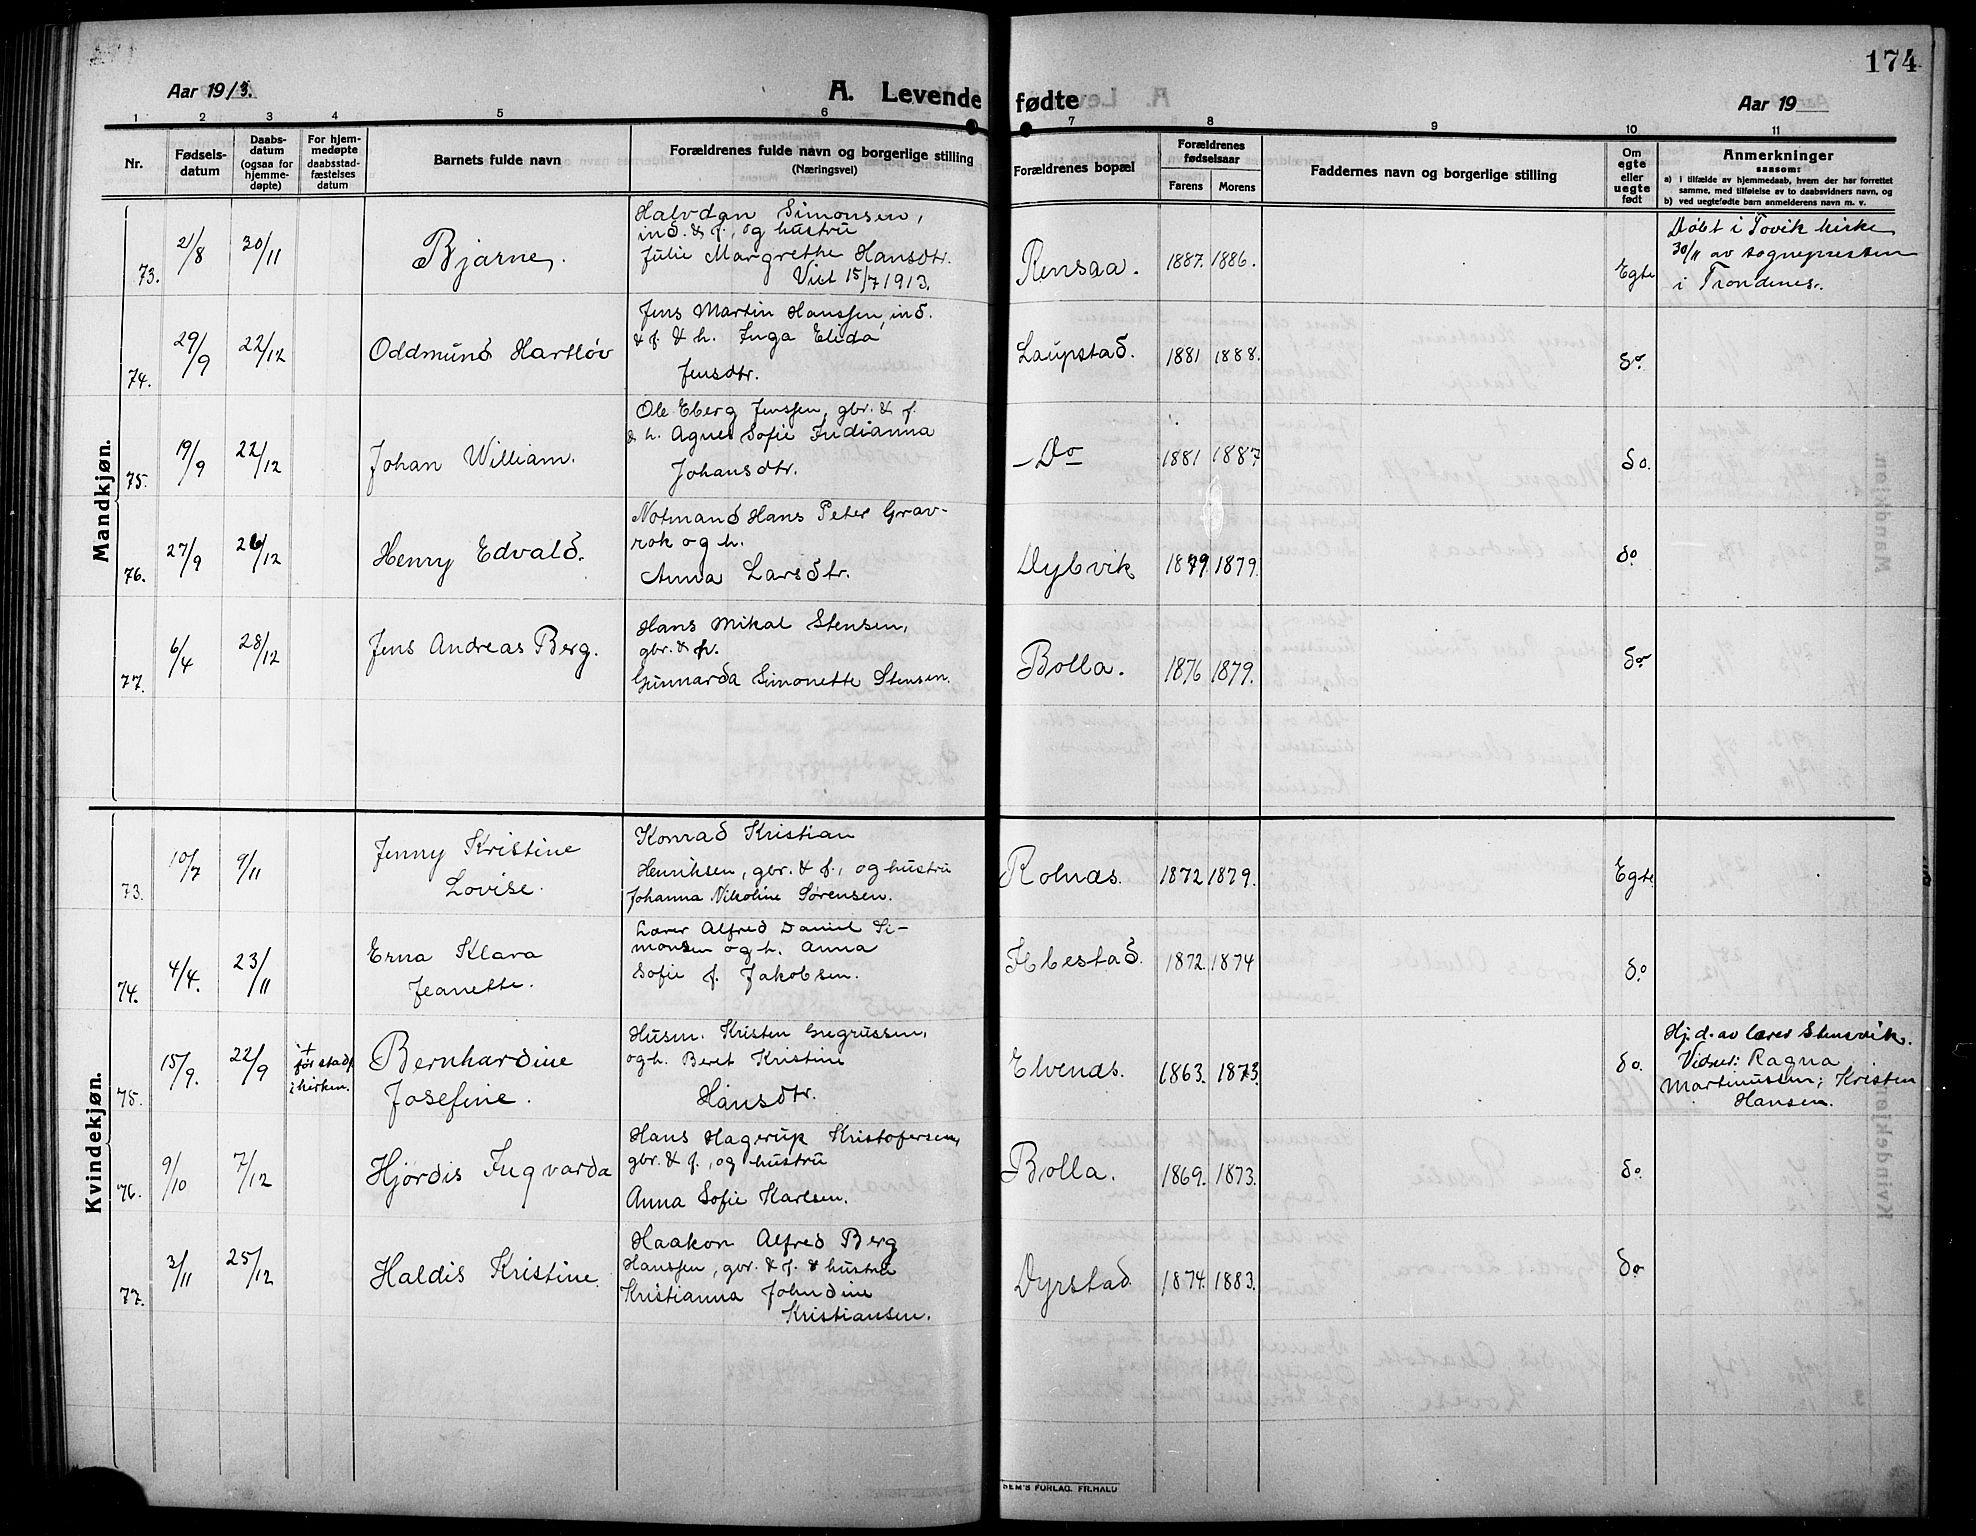 174
Aar 1913.
A. Levende fødte
Aar 19
1 2 3 4 5 6 7 8 9 10 11
Nr.
Fødsels-
datum
Daabs-
datum
(ogsaa for
hjemme-
døpte)
For hjem-
medøpte
daabsstad-
fæstelses
datum
Barnets fulde navn
Forældrenes fulde navn og borgerlige stilling
(Næringsvei)
Forældrenes bopæl
Forældrenes
fødselsaar
Farens Morens
Faddernes navn og borgerlige stilling
Om
egte
eller
uegte
født
Anmerkninger
saasom:
a) i tilfælde av hjemmedaab, hvem der har forrettet
samme, med tilføielse av to daabsvidners navn, og
b) ved uegtefødte barn anmelderens navn m. v.
Mandkjøn.
73. 21/8 30/11 Bjarne.
Halvdan Simonsen,
ind. & f., og hustru
Julie Margrethe Hansdtr.
Viet 15/7 1913.
Rensaa. 1887. 1886. Egte
Døbt i Tovik kirke
30/11 av sognepresten
i Trondenes.
74. 29/9 22/12 Oddmund Hartløv
Jens Martin Hanssen, ind.
& f. & h. Inga Elida
Jensdtr.
Laupstad. 1881 1888. do
75. 19/9 22/12 Johan William.
Ole Eberg Jenssen, gbr. & f.
& h. Agnes Sofie Indianna
Johansdtr.
- Do 1881 1887 do.
76. 27/9 26/12 Henry Edvald.
Notmand Hans Peter Grav-
rok og h.
Anna Larsdtr.
Dybvik 1879. 1879. do
77. 6/4 28/12 Jens Andreas Berg.
Hans Mikal Stensen,
gbr. & h.
Gunnarda Simonette Stensen.
Bolla. 1876 1879. do
Kvindekjøn.
73. 10/7 9/11 Jenny Kristine
Lovise.
Konrad Kristian
Henriksen, gbr. & f., og hustru
Johanna Nikoline Sørensen.
Rolnæs. 1872 1879. Egte
74. 4/4. 23/11 Erna Klara
Jeanette.
Lærer Alfred Daniel Si-
monsen og h. Anna
Sofie f. Jakobsen.
Ibestad. 1872 1874 do
75. 15/9. 22/9 +
før stadf.
i kirken.
Bernhardine
Josefine.
Husm. Kristen Gregussen,
og h. Beret Kristine
Hansdtr.
Elvenæs. 1863. 1873. do.
Hj. d. av lærer Stensvik.
Vidner: Ragna
Martinussen; Kristen
Hansen.
76. 9/10 7/12 Hjørdis Ingvarda
Hans Hagerup Kristofersen,
gbr. & f., og hustru
Anna Sofie Karlsen.
Bolla. 1869. 1873. do
77. 3/11 25/12 Haldis Kristine.
Haakon Alfred Berg
Hanssen, gbr. & f. & hustru
Kristianna Johndine
Kristiansen.
Dyrstad 1874. 1883. do
DEM'S FORLAG. FR.HALD